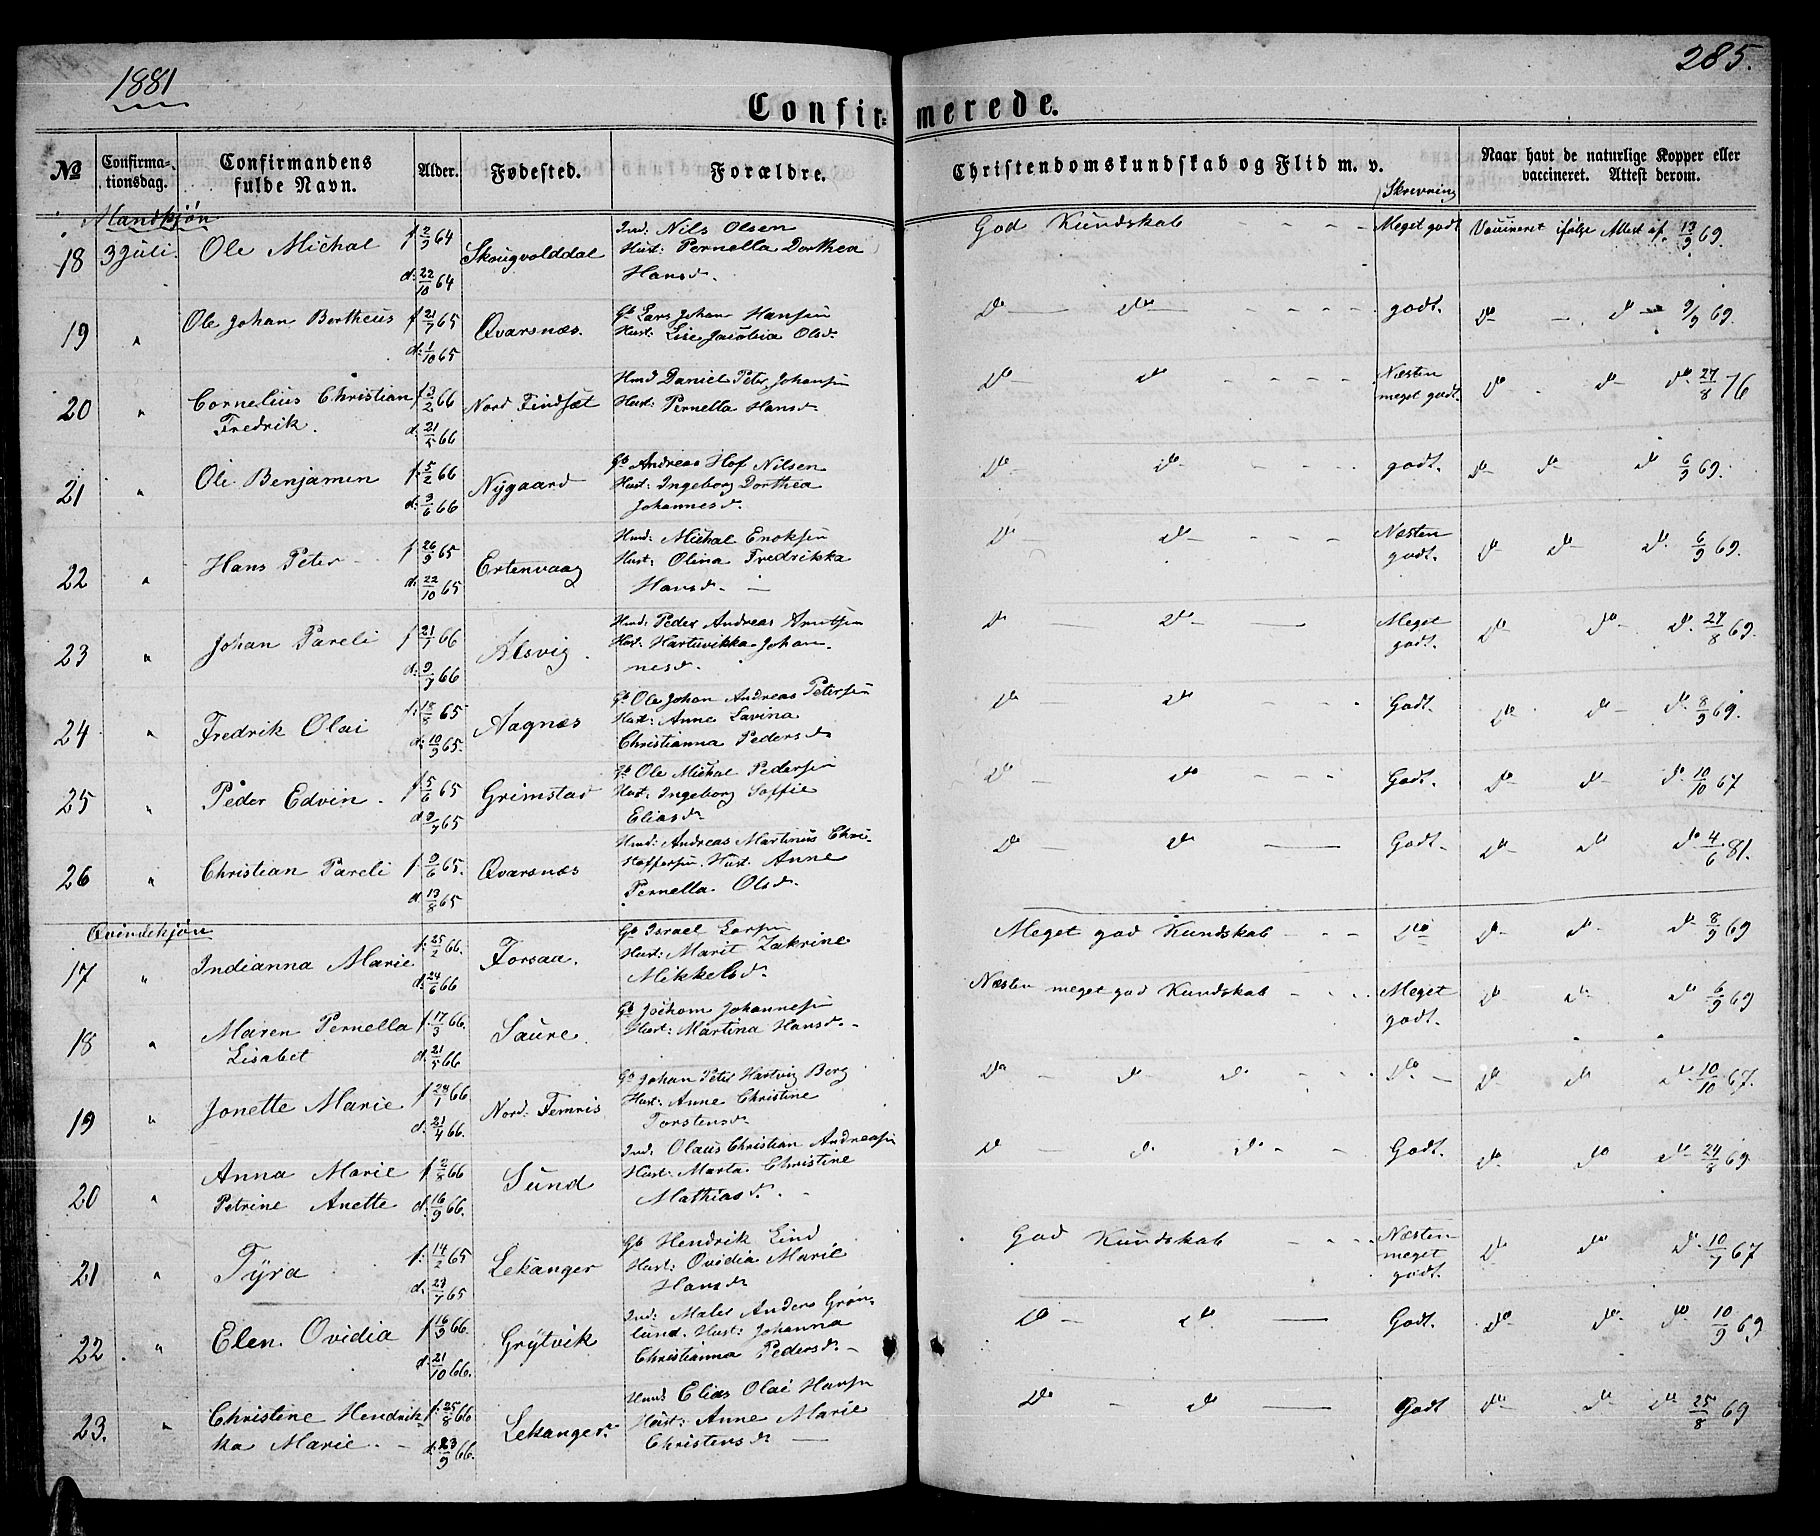 1881
285.
Confirmerede.
No
Confirmationsdag.
Confirmandens fulde Navn.
Alder.
Fødested.
Forældre.
Christendomskundskab og Flid m. v.
Skrevning
Naar havt de naturlige Kopper eller vaccineret. Attest derom.
Mandkjøn
18 3 Juli. Ole Michal f 2/9 64 d: 22/10 64 Skougvolddal Ind. Nils Olsen God Kundskab - - - - Meget godt Vaccineret ifølge Attest af 13/9 69.
Hust: Pernella Dorthea
Hansd.
19 " Ole Johan Bertheus f 21/7 65 d: 1/10 65 Qvarsnæs. Gb Lars Johan Hansen Do - Do - - - godt. Do - Do 9/9 69.
Hust: Lise Jacobia Olsd.
20 " Cornelius Christian f 3/2 66 d: 21/5 66 Nord Findsæt Hmd Daniel Peter Johansen Do - Do - - - Næsten meget godt. Do - Do Do 27/8 76
Fredrik. Hust: Pernella Hansd.
21 " Ole Benjamin f. 5/2 66 d. 3/6 66 Nygaard Gb Andreas Hof Nilsen Do Do - - - godt. Do Do Do 6/9 69.
Hust: Ingeborg Dorthea
Johannesd.
22 " Hans Peter - f 26/9 65 d. 22/10 65 Ertenvaag Hmd: Michal Enoksen Do Do - - Næsten godt. Do Do Do. 6/9 69.
Hust: Olina Fredrikka
Hansd. -
23 " Johan Pareli f 21/1 66 d. 9/7 66 Alsvig. Hmd: Peder Andreas Arntsen Do - Do - Meget godt. Do Do Do. 27/8 69.
Hust. Hartvikka Johan-
nesd.
24 " Fredrik Olai f. 18/8 65 d. 10/9 65. Aagnæs Gb Ole Johan Andreas Petersen Do - Do - - Godt. Do Do - Do. 8/9 69.
Hust: Anne Lavina
Christianna Pedersd
25 " Peder Edvin. f 5/6 65 d 9/7 65 Grimstad Gb Ole Michal Pedersen Do - Do - - - Godt. Do - Do Do. 10/10 67
Hust: Ingeborg Soffie
Eliasd.
26 " Christian Pareli f. 9/6 65. d. 13/8 65 Qvarsnæs Hmd: Andreas Martinus Chri- Do - Do - Godt. Do - Do Do 4/6 81.
stoffersen, Hust: Anne
Pernella Olsd.
Qvindekjøn
17 " Indianna Marie f. 25/2 66. d. 24/6 66 Forsaa. Gb Israel Larsen Meget god Kundskab - - - Do Do - Do - Do 8/9 69
Hust: Marit Zakrine
Mikkelsd.
18 " Maren Pernella f. 17/3 66. d. 21/5 66 Saure. Gb Jochom Johannesen Næsten meget god Kundskab - - - Meget godt. Do - Do - Do 6/9 69
Lisabet Hust: Martina Hansd. -
19 " Jonette Marie f 24/1 66 d. 21/4 66. Nord: Femris Gb Johan Peter Hartvig Berg Do - Do - Do - - - Do - Do Do Do 10/10 67.
Hust: Anne Christine
Torstensd.
20 " Anna Marie f 2/8 66 d. 16/9 66. Sund Ind. Olaus Christian Andreasen Do - Do Do - - Godt. Do Do Do - 24/8 69
Petrine Anette Hust: Marta Christine
Mathiasd.
21 " Tyra f. 14/2 65 d. 23/7 65 Lekanger Gb Hendrik Lind God Kundskab - - - Næsten meget godt. Do Do Do - 10/7 67
Hust: Ovidia Marie
Hansd.
22. " Elen Ovidia f 16/9 66. d. 21/10 66. Grytvik Ind: Maler Anders Grøn- Do - Do - Godt. Do - Do - Do. 10/9 69
lund. Hust: Johanna
Christianna Pedersd. -
23. " Christine Hendrik- f. 25/8 66 d. 23/9 66. Lekanger. Hmd Elias Olai Hansen Do - Do - Godt Do - Do - Do 25/8 69
ka Marie. - Hust: Anne Marie
Christensd. -